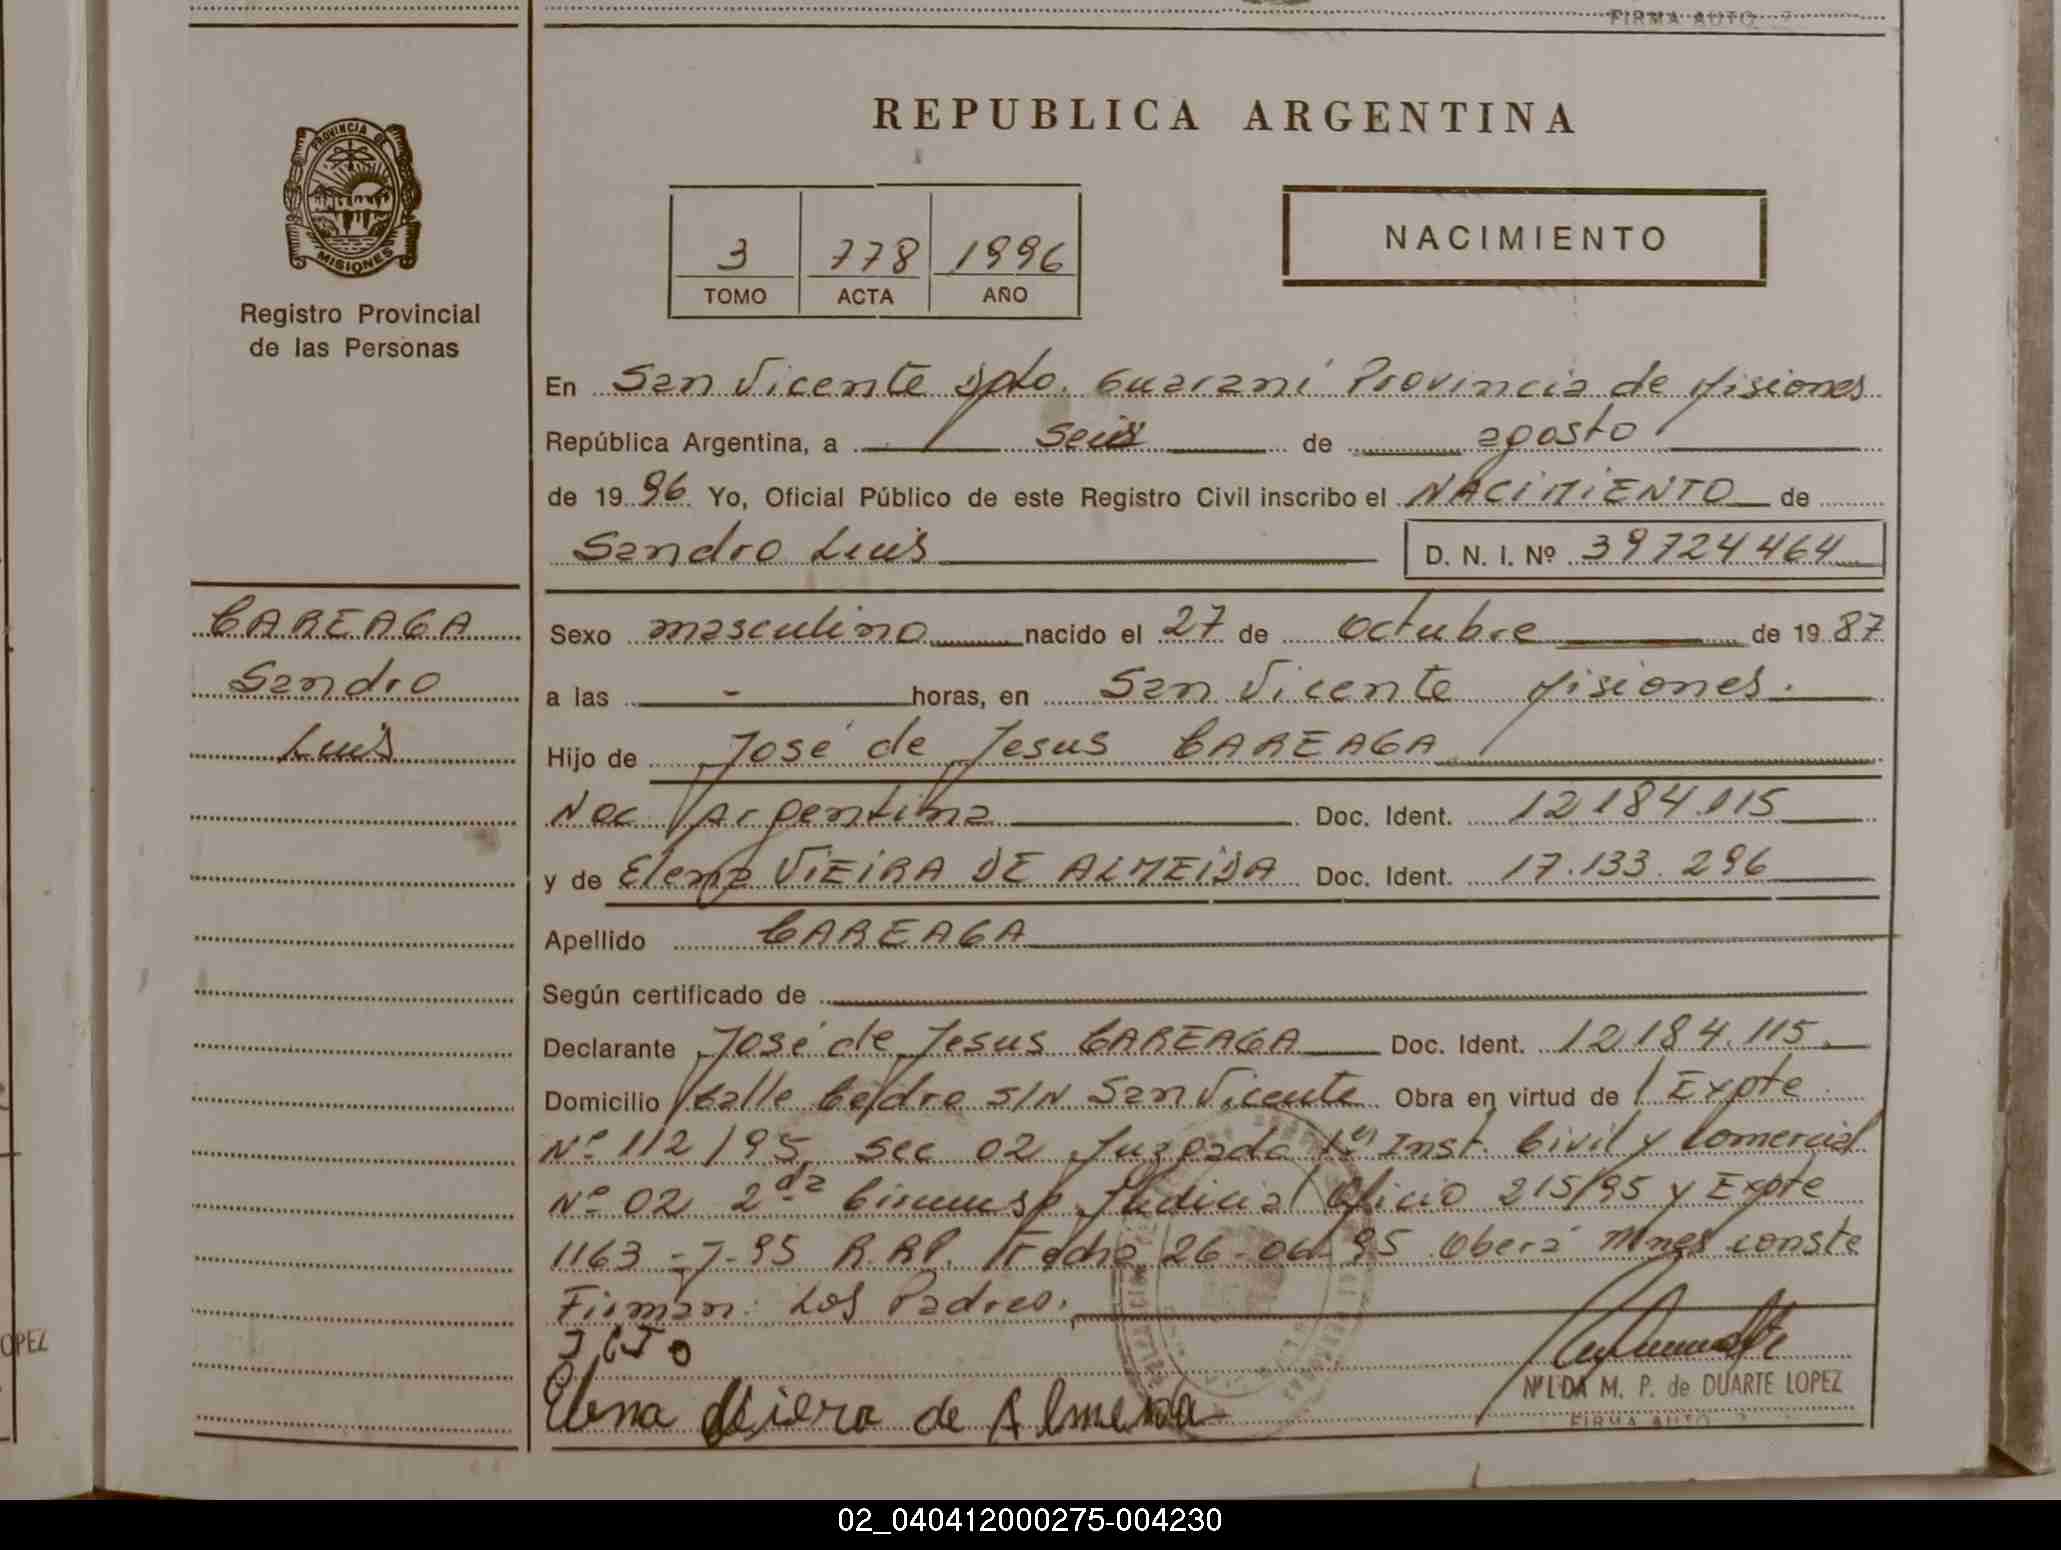 FIRMA AUTO
REPUBLICA ARGENTINA
PROVINCIA DE
MISIONES
Registro Provincial
de las Personas
3 778 1996
TOMO ACTA AÑO
NACIMIENTO
En San Vicente Dpto. Guaraní Provincia de Misiones
República Argentina, a seis de agosto
de 19 96 Yo, Oficial Público de este Registro Civil inscribo el NACIMIENTO de
Sandro Luis D. N. I. Nº 39724464
CAREAGA
Sandro
Luis
Sexo masculino nacido el 27 de octubre de 19 87
a las - horas, en San Vicente Misiones.
Hijo de José de Jesus CAREAGA
Nac. Argentina Doc. Ident. 12184.115
y de Elena VIEIRA DE ALMEIDA Doc. Ident. 17.133.296
Apellido CAREAGA
Según certificado de
Declarante José de Jesus CAREAGA Doc. Ident. 12184.115.
Domicilio Calle Cedro S/N San Vicente Obra en virtud de Expte
Nº 112/95 Sec 02 Juzgado 1º Inst. Civil y Comercial
Nº 02 2da Judicial Oficio 215/95 y Expte
1163 - J - 95 R.R.P. Fecha 26-06-95 Oberá Mnes conste
Firman: Los Padres.
J C J
Elena de Almeida
NILDA M. P. de DUARTE LOPEZ
FIRMA AUTO
OPEZ
02_040412000275-004230